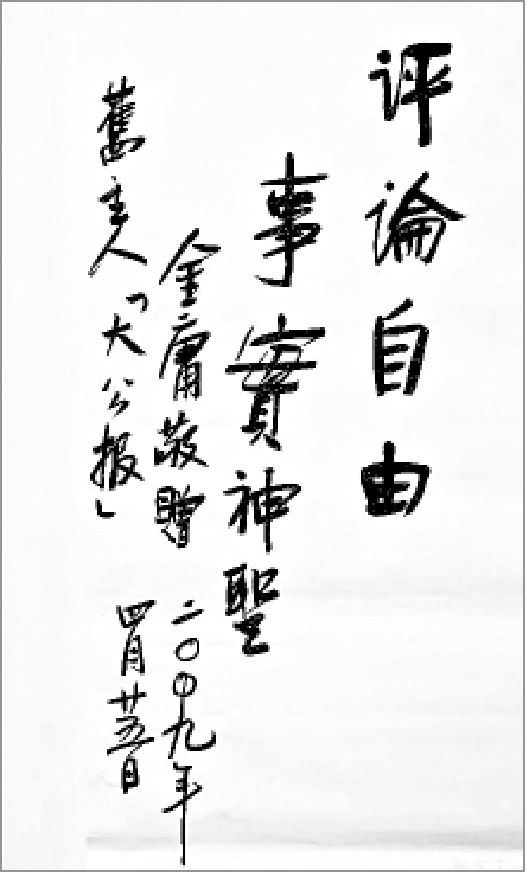 评論自由
事實神聖
金庸敬贈
舊主人「大公报」
二〇〇九年
四月廿五日